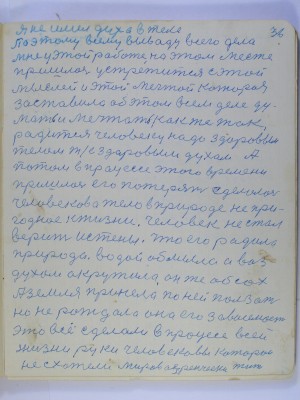 36
я не имел духа в теле
Поэтому всему выводу всего дела
мне у этой работе на этом месте
пришлося устретится с этой
мыслей и этой мечтой которая
заставила об этом всем деле ду-
мать и мечтать как же так
родится человеку надо здоровым
телом т/ж здоровым духом А
потом в процессе этого времени
пришлося его потерять сделалося
человеково тело в природе не при-
годное к жизни. Человек не стал
верить истены. что его радила
природа. водой обмыла а воз
духом окружила. он же обсох
А земля приняла по ней ползат
но не рождала она его завас
это всё сделали в процессе всей
жизни руки человековы которое
не схотели мирово жить